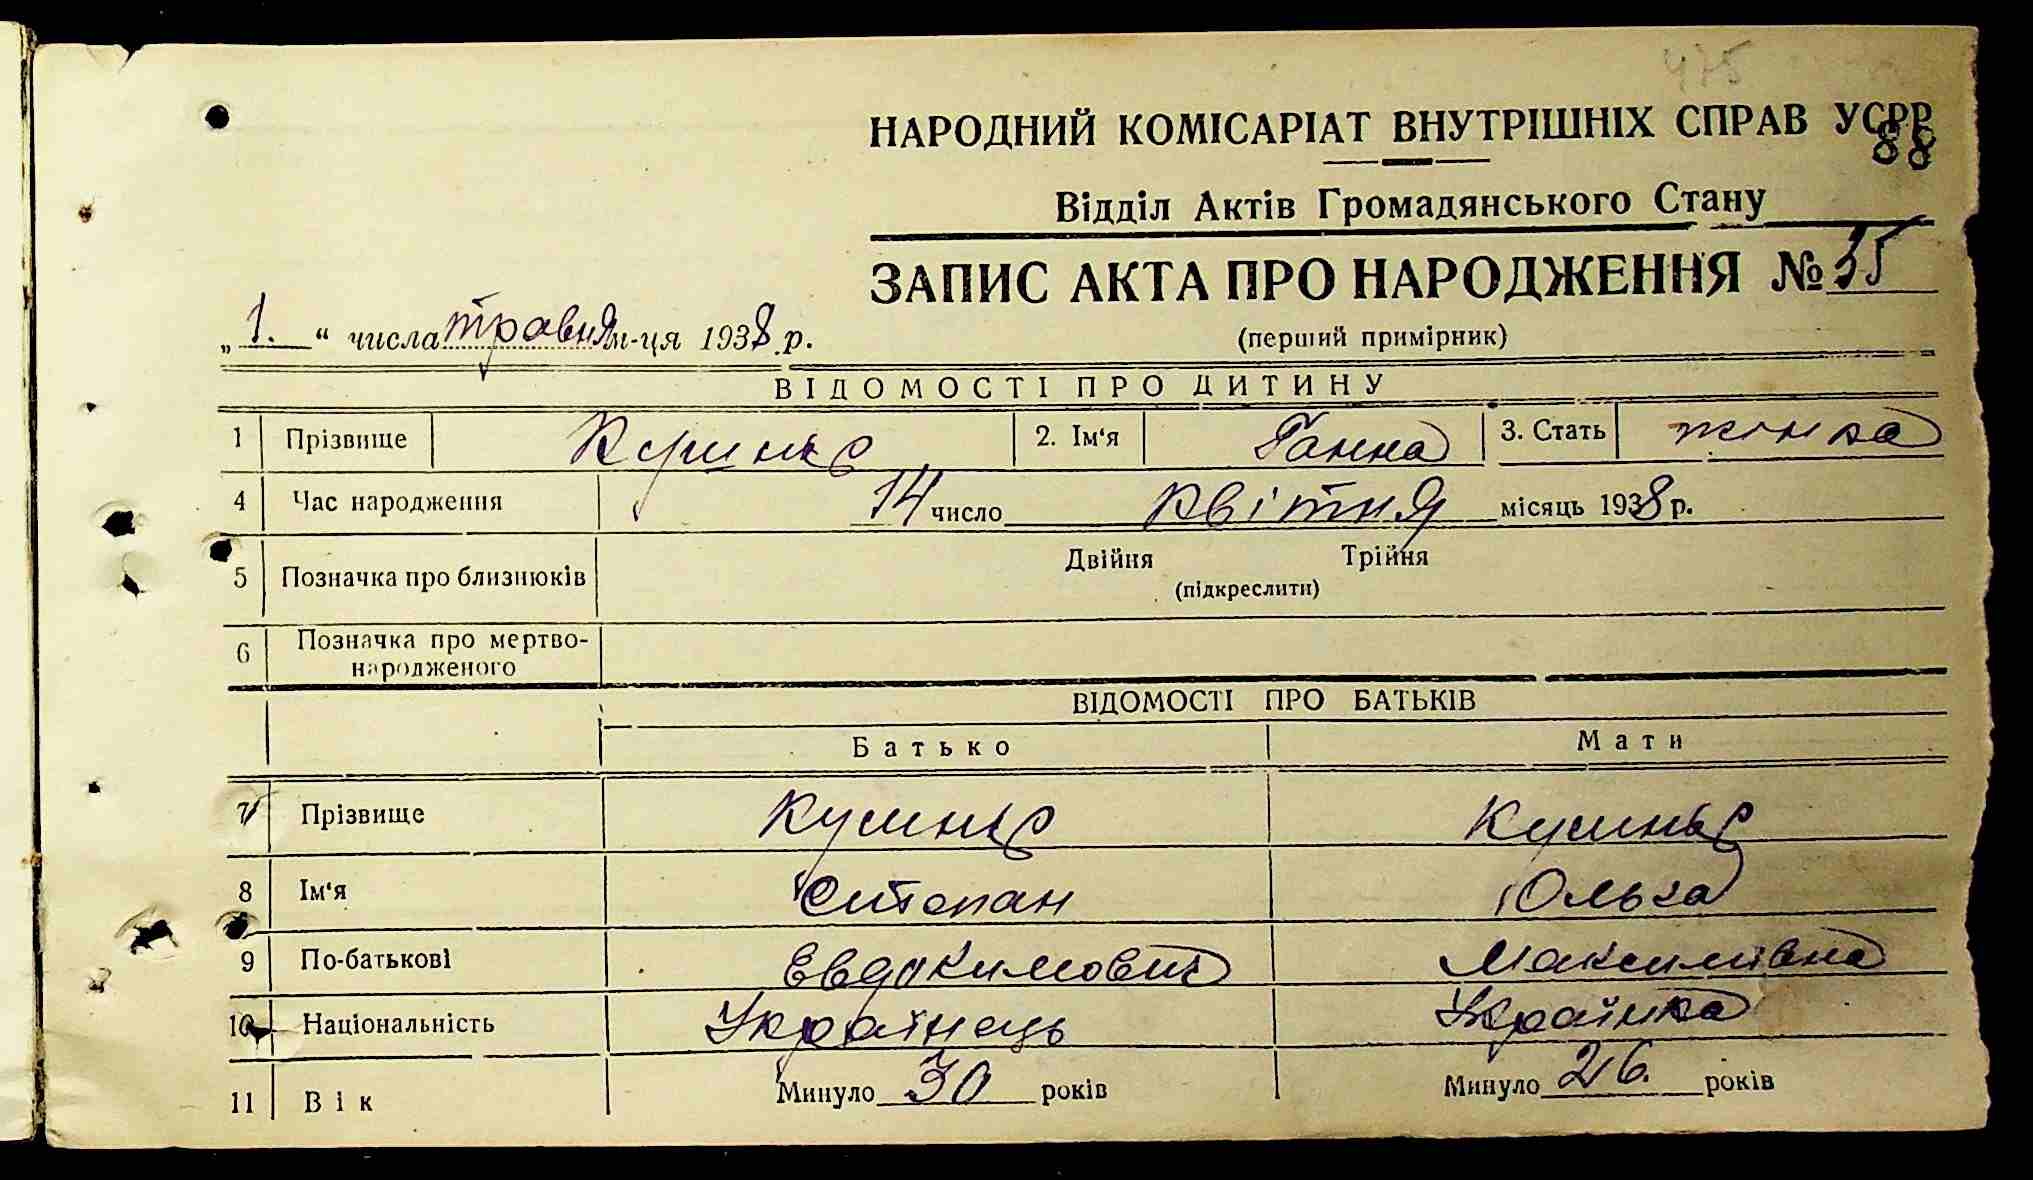 475
НАРОДНИЙ КОМІСАРІАТ ВНУТРІШНІХ СПРАВ УСРР
88
Відділ Актів Громадянського Стану
ЗАПИС АКТА ПРО НАРОДЖЕННЯ № 35
„1.“ числа травня м-ця 1938 р.
(перший примірник)
ВІДОМОСТІ ПРО ДИТИНУ
1 Прізвище 2. Ім‘я Ганна 3. Стать жінка
4 Час народження 14 число квітня місяць 1938 р.
5 Позначка про близнюків Двійня Трійня
(підкреслити)
6 Позначка про мертво-
народженого
ВІДОМОСТІ ПРО БАТЬКІВ
Батько Мати
7 Прізвище
8 Ім‘я Степан Ольга
9 По-батькові Евдокимович Максимівна
10 Національність Українець Українка
11 Вік Минуло 30 років Минуло 26. років